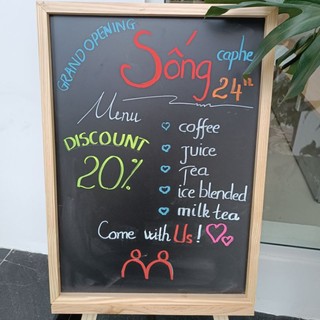 GRAND OPENING
Sống caphe
24H
Menu
DISCOUNT
20%
coffee
Juice
Tea
ice blended
milk tea
Come with Us!